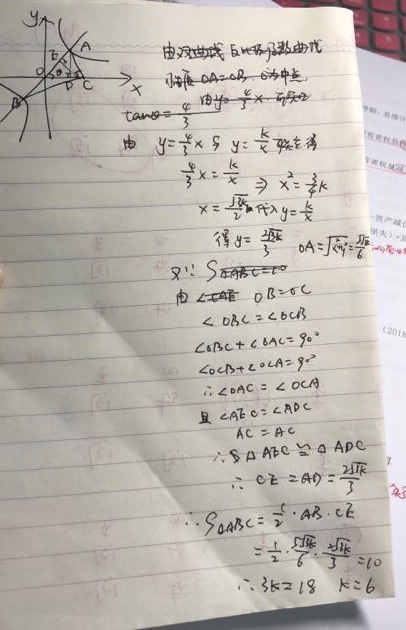 y
A
E
O
D
C
x
B
由双曲线
OA=OB
tanθ=4/3 由y=4/3x
由 y=4/3x 与 y=k/x 联立得
4/3x=k/x ⇒ x²=3/4k
x=√3k/2 代入y=k/x
得y=2√3k/3 OA=√x²+y²=5√3k/6
又∵ S△ABC=10
由 ∠CAE OB=OC
∠OBC=∠OCB
∠OBC+∠OAC=90°
∠OCB+∠OCA=90°
∴∠OAC=∠OCA
且∠AEC=∠ADC
AC=AC
∴△AEC≌△ADC
∴CE=AD=2√3k/3
∴S△ABC=1/2·AB·CE
=1/2·5√3k/6·2√3k/3=10
∴3k=18 k=6
(2018